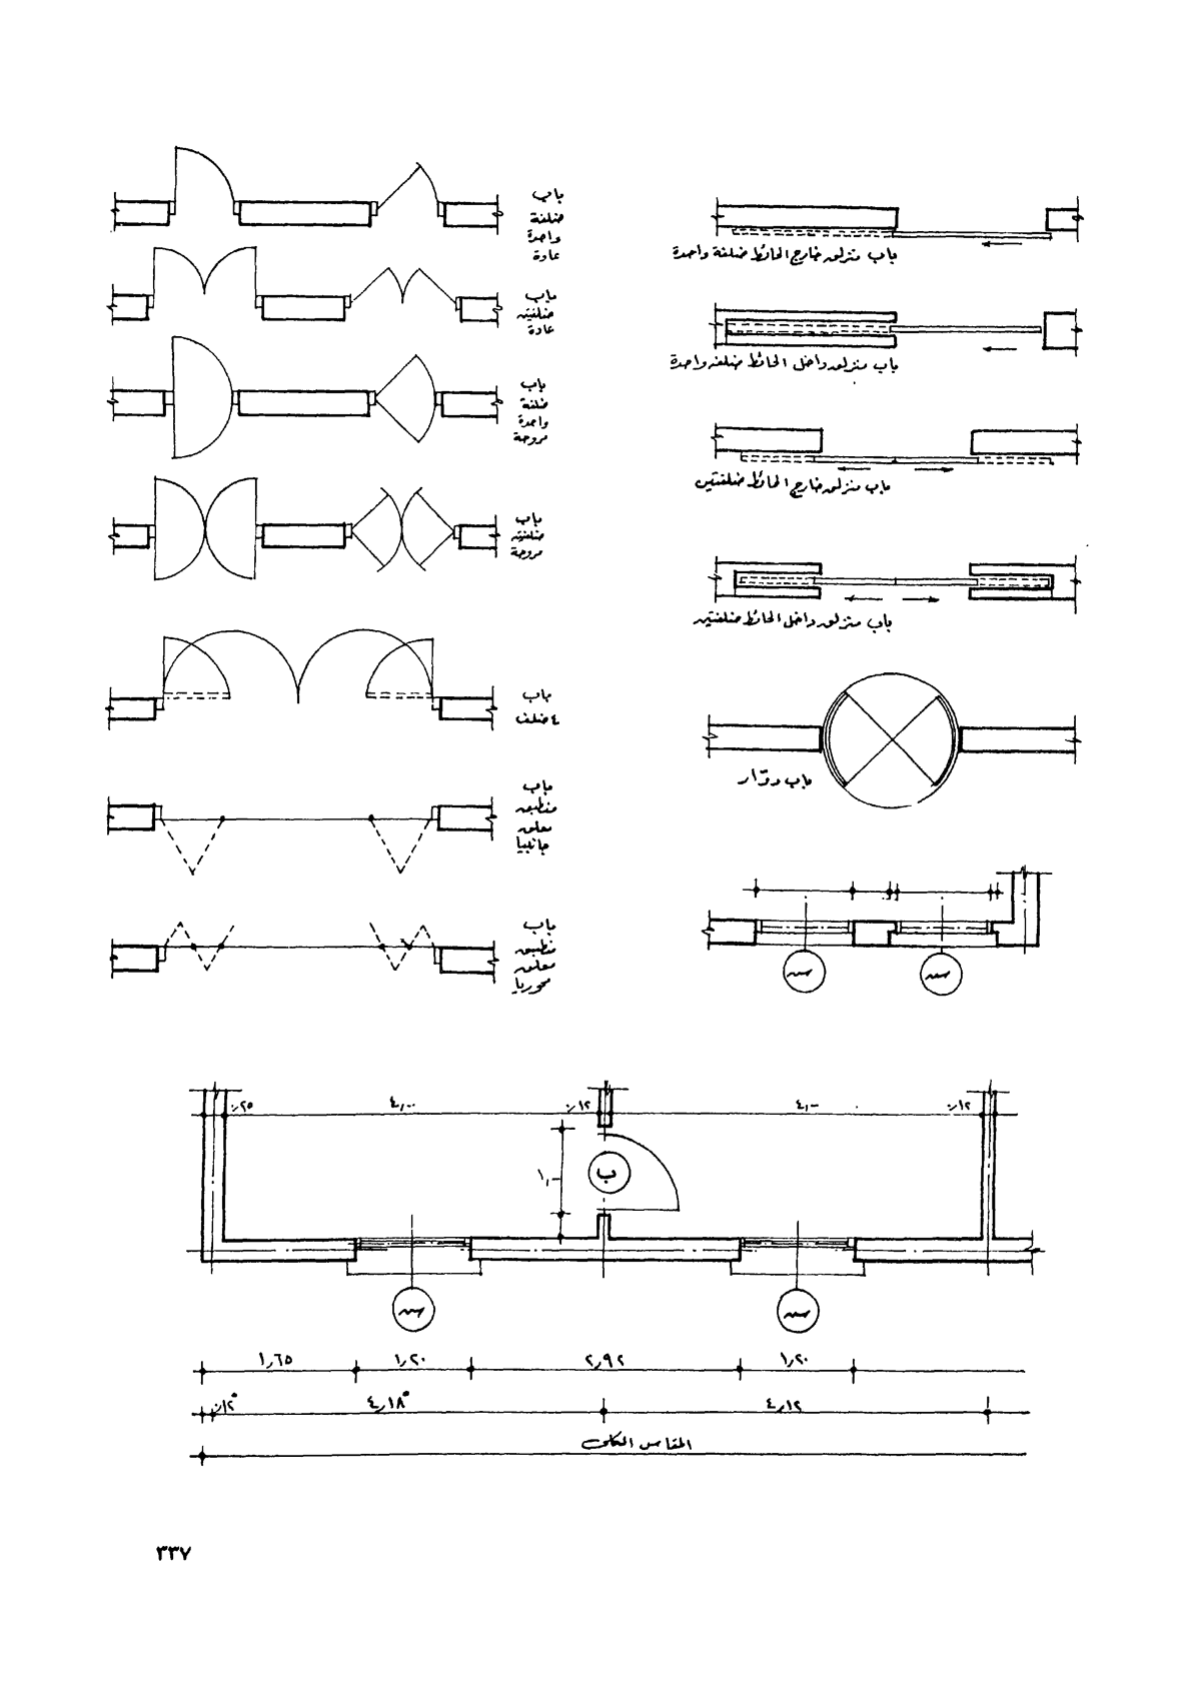 باب
ضلفة
واحدة
عادة
باب
ضلفتين
عادة
باب
ضلفة
واحدة
مروحة
باب
ضلفتين
مروحة
باب
٤ ضلف
باب
منطبق
معلق
جانبيا
باب
منطبق
معلق
محوريا
باب منزلق خارج الحائط ضلفة واحدة
باب منزلق داخل الحائط ضلفة واحدة
باب منزلق خارج الحائط ضلفتين
باب منزلق داخل الحائط ضلفتين
باب دوّار
٤,٠٠
٤,٠٠
١,٠٠
ب
١,٦٥
١,٢٠
٢,٩٢
١,٢٠
٤,١٨٥
٤,١٢
المقاس الكلى
٣٣٧